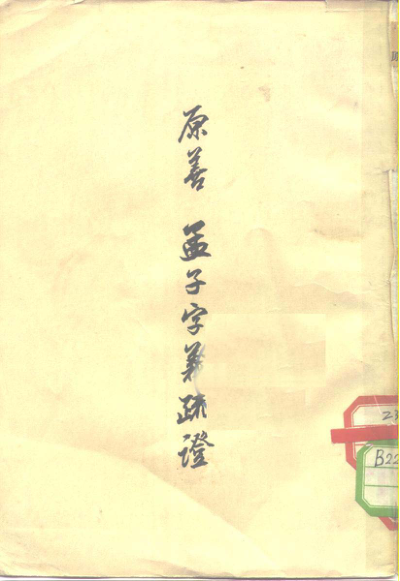 原善 孟子字義疏證
23
B22